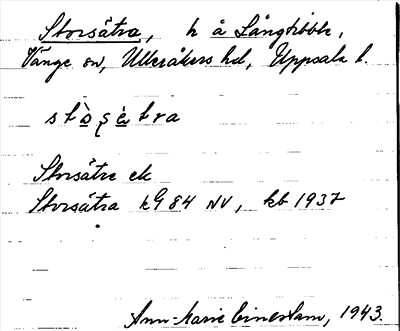 Storsätra, h å Långtibble,
Vänge sn, Ulleråkers hd, Uppsala l.
stò̱ʂè̱tra
Storsätre ek
Storsätra kG 84 NV, kb 1937
Ann-Marie Einerstam, 1943.